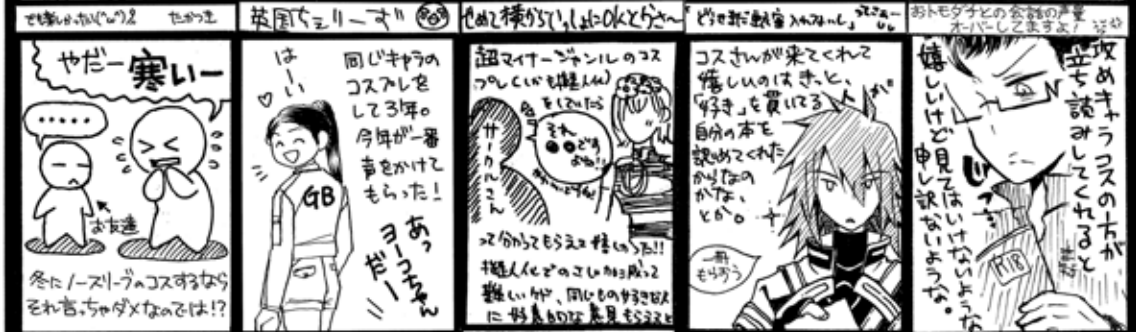 でも嬉しかったい(´ω`)
たかつき
やだー寒いー
・・・・・
お友達
冬にノースリーブのコスするなら
それ言っちゃダメなのでは!?
英国ちぇりーず
はーい
同じキャラの
コスプレを
して3年。
今年が一番
声をかけて
もらった!
あっ
ヨーコちゃん
だー
GB
せめて横からでいっしょにOKとらさ〜
超マイナージャンルのコス
プレ(しかも擬人化)
をしていたら
サークルさん
それ
●●です
よね!!
って分かってもらえて嬉しかった!!
難しいが、同じもの好きな人
に好意的な意見もらえると
コスさんが来てくれて
嬉しいのはきっと、
「好き」を貫いてる
自分の本を
認めてくれた
からなの
かな、
とか。
一冊
もらおう
おトモダチとの会話の声量
オーバーしてますよ!
攻めキャラコスの方が
立ち読みしてくれると
嬉しいけど見てはいけないような
申し訳ないような。
R18